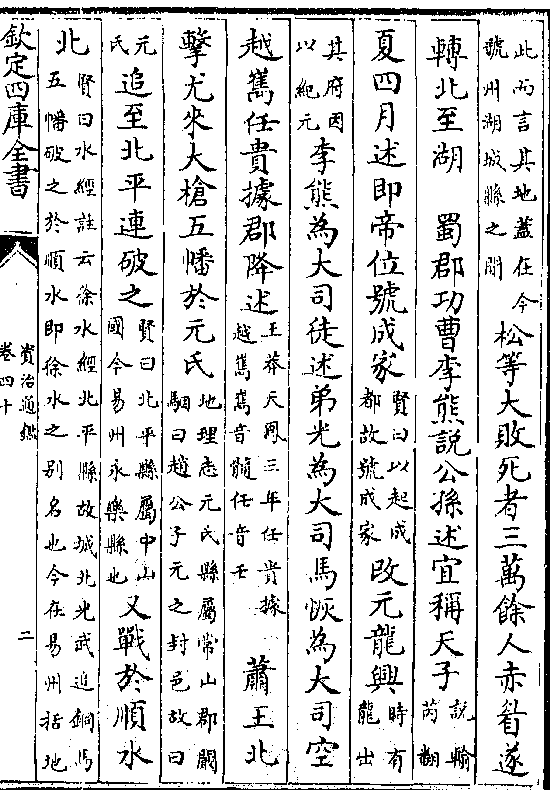 此而言其地蓋在今
號州湖城縣之間
松等大敗死者三萬餘人赤眉遂
轉北至湖　蜀郡功曹李熊說公孫述宜稱天子
說輸
芮翻
夏四月述即帝位號成家
賢曰以起成
都故號成家
改元龍興
時有
龍出
其府因
以紀元
李熊為大司徒述弟光為大司馬恢為大司空
越嶲任貴據郡降述
王莽天鳳三年任貴據
越嶲嶲音髓任音壬
蕭王北
擊尤來大槍五幡於元氏
地理志元氏縣屬常山郡闞
駰曰趙公子元之封邑故曰
元
氏
追至北平連破之
賢曰北平縣屬中山
國今易州永樂縣也
又戰於順水
北
賢曰水經註云徐水經北平縣故城北光武追銅馬
五幡破之於順水即徐水之别名也今在易州括地
欽定四庫全書
資治通鑑
卷四十
二